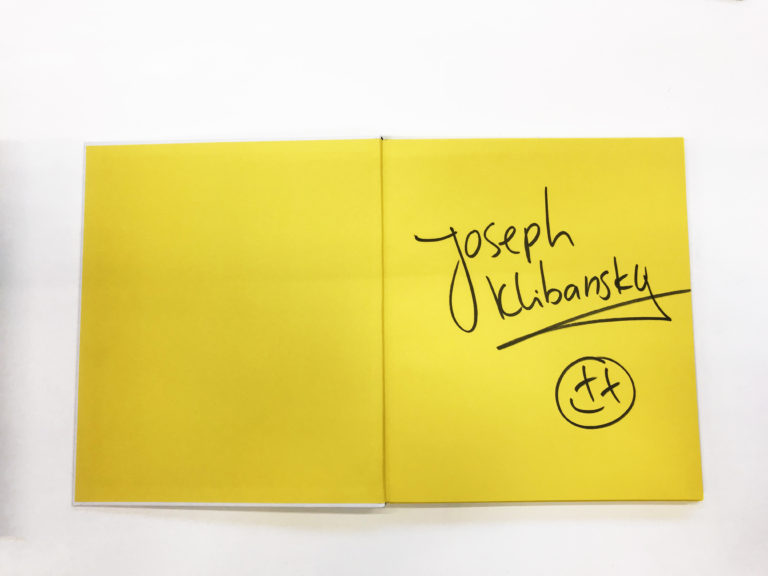 Joseph
Klibansky